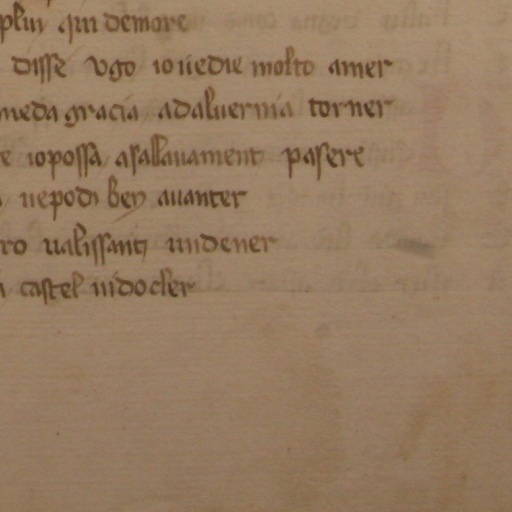 pluy qui demore
disse vgo io uedie molto amer
meda gracia adaluernia torner
e iopossa asallauament pasere
uepodi ben auanter
ro ualissant undener
castel uidocler